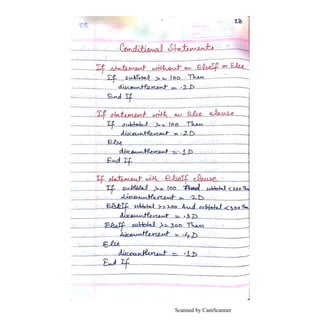 28
Conditional Statements
If statement without an ElseIf or Else
If subtotal >= 100 Then
discountPercent = .2D
End If
If statement with an Else clause
If subtotal >= 100 Then
discountPercent = .2D
Else
discountPercent = .1D
End If
If statement with ElseIf clause
If subtotal >= 100 And subtotal < 200 Then
discountPercent = .2D
ElseIf subtotal >= 200 And subtotal < 300 Then
discountPercent = .3D
ElseIf subtotal >= 300 Then
discountPercent = .4D
Else
discountPercent = .1D
End If
Scanned by CamScanner